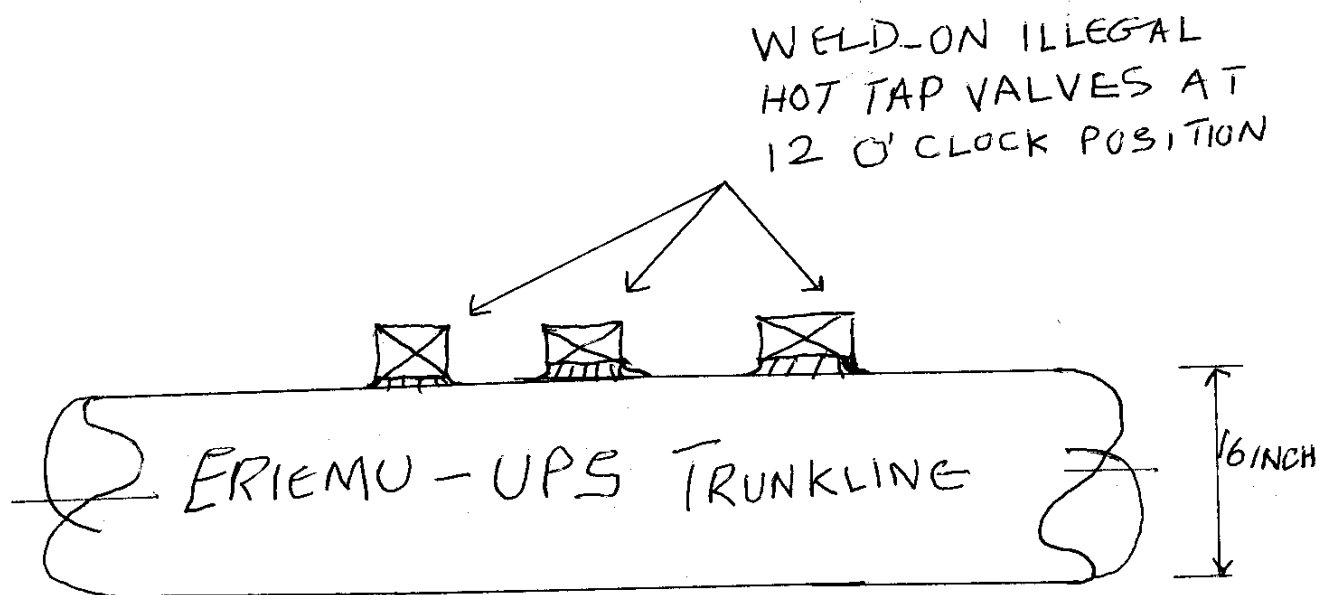 WELD-ON ILLEGAL
HOT TAP VALVES AT
12 O'CLOCK POSITION
ERIEMU-UPS TRUNKLINE
16 INCH